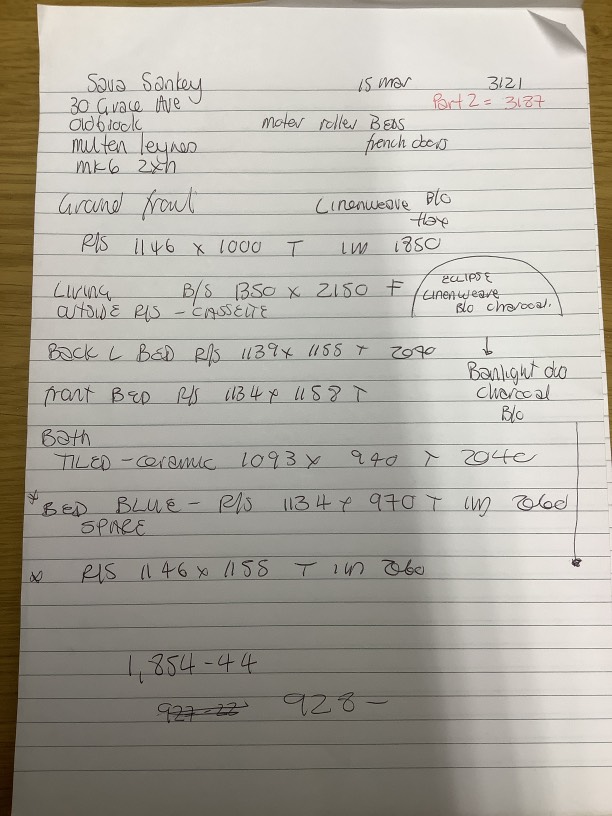 Sava Sankey 15 mar 3121
30 Grace Ave Part 2 = 3187
oldbrook moter roller BEDS
multen leynes french doors
mk6 2xh
Grand front Linenweave Blo
flax
R/S 1146 x 1000 T IW 1850
Living B/S 1350 x 2150 F
outside R/S - CASSETTE
ECLIPSE
Linenweave
Blo charcoal.
Back L BED R/S 1139 x 1155 T 2090
Banlight duo
charocal
Blo
front BED R/S 1134 x 1158 T
Bath
TILED - ceramic 1093 x 940 T 2040
* BED BLUE - R/S 1134 x 970 T IW 2060
SPARE
* R/S 1146 x 1155 T IW 2060
1,854-44
927-22 928-